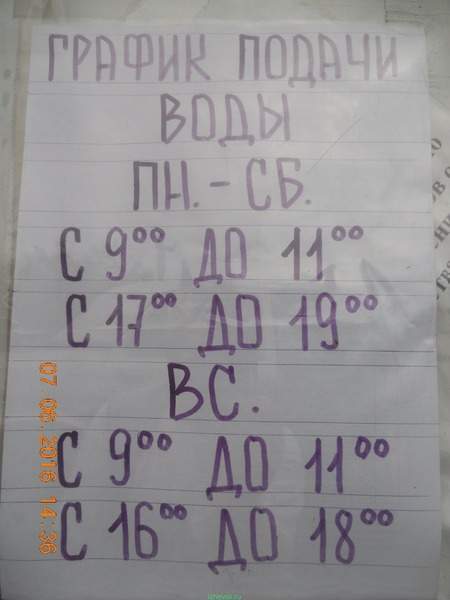 ГРАФИК ПОДАЧИ
ВОДЫ
ПН. - СБ.
С 9⁰⁰ ДО 11⁰⁰
С 17⁰⁰ ДО 19⁰⁰
ВС.
С 9⁰⁰ ДО 11⁰⁰
С 16⁰⁰ ДО 18⁰⁰
07.06.2016 14:36